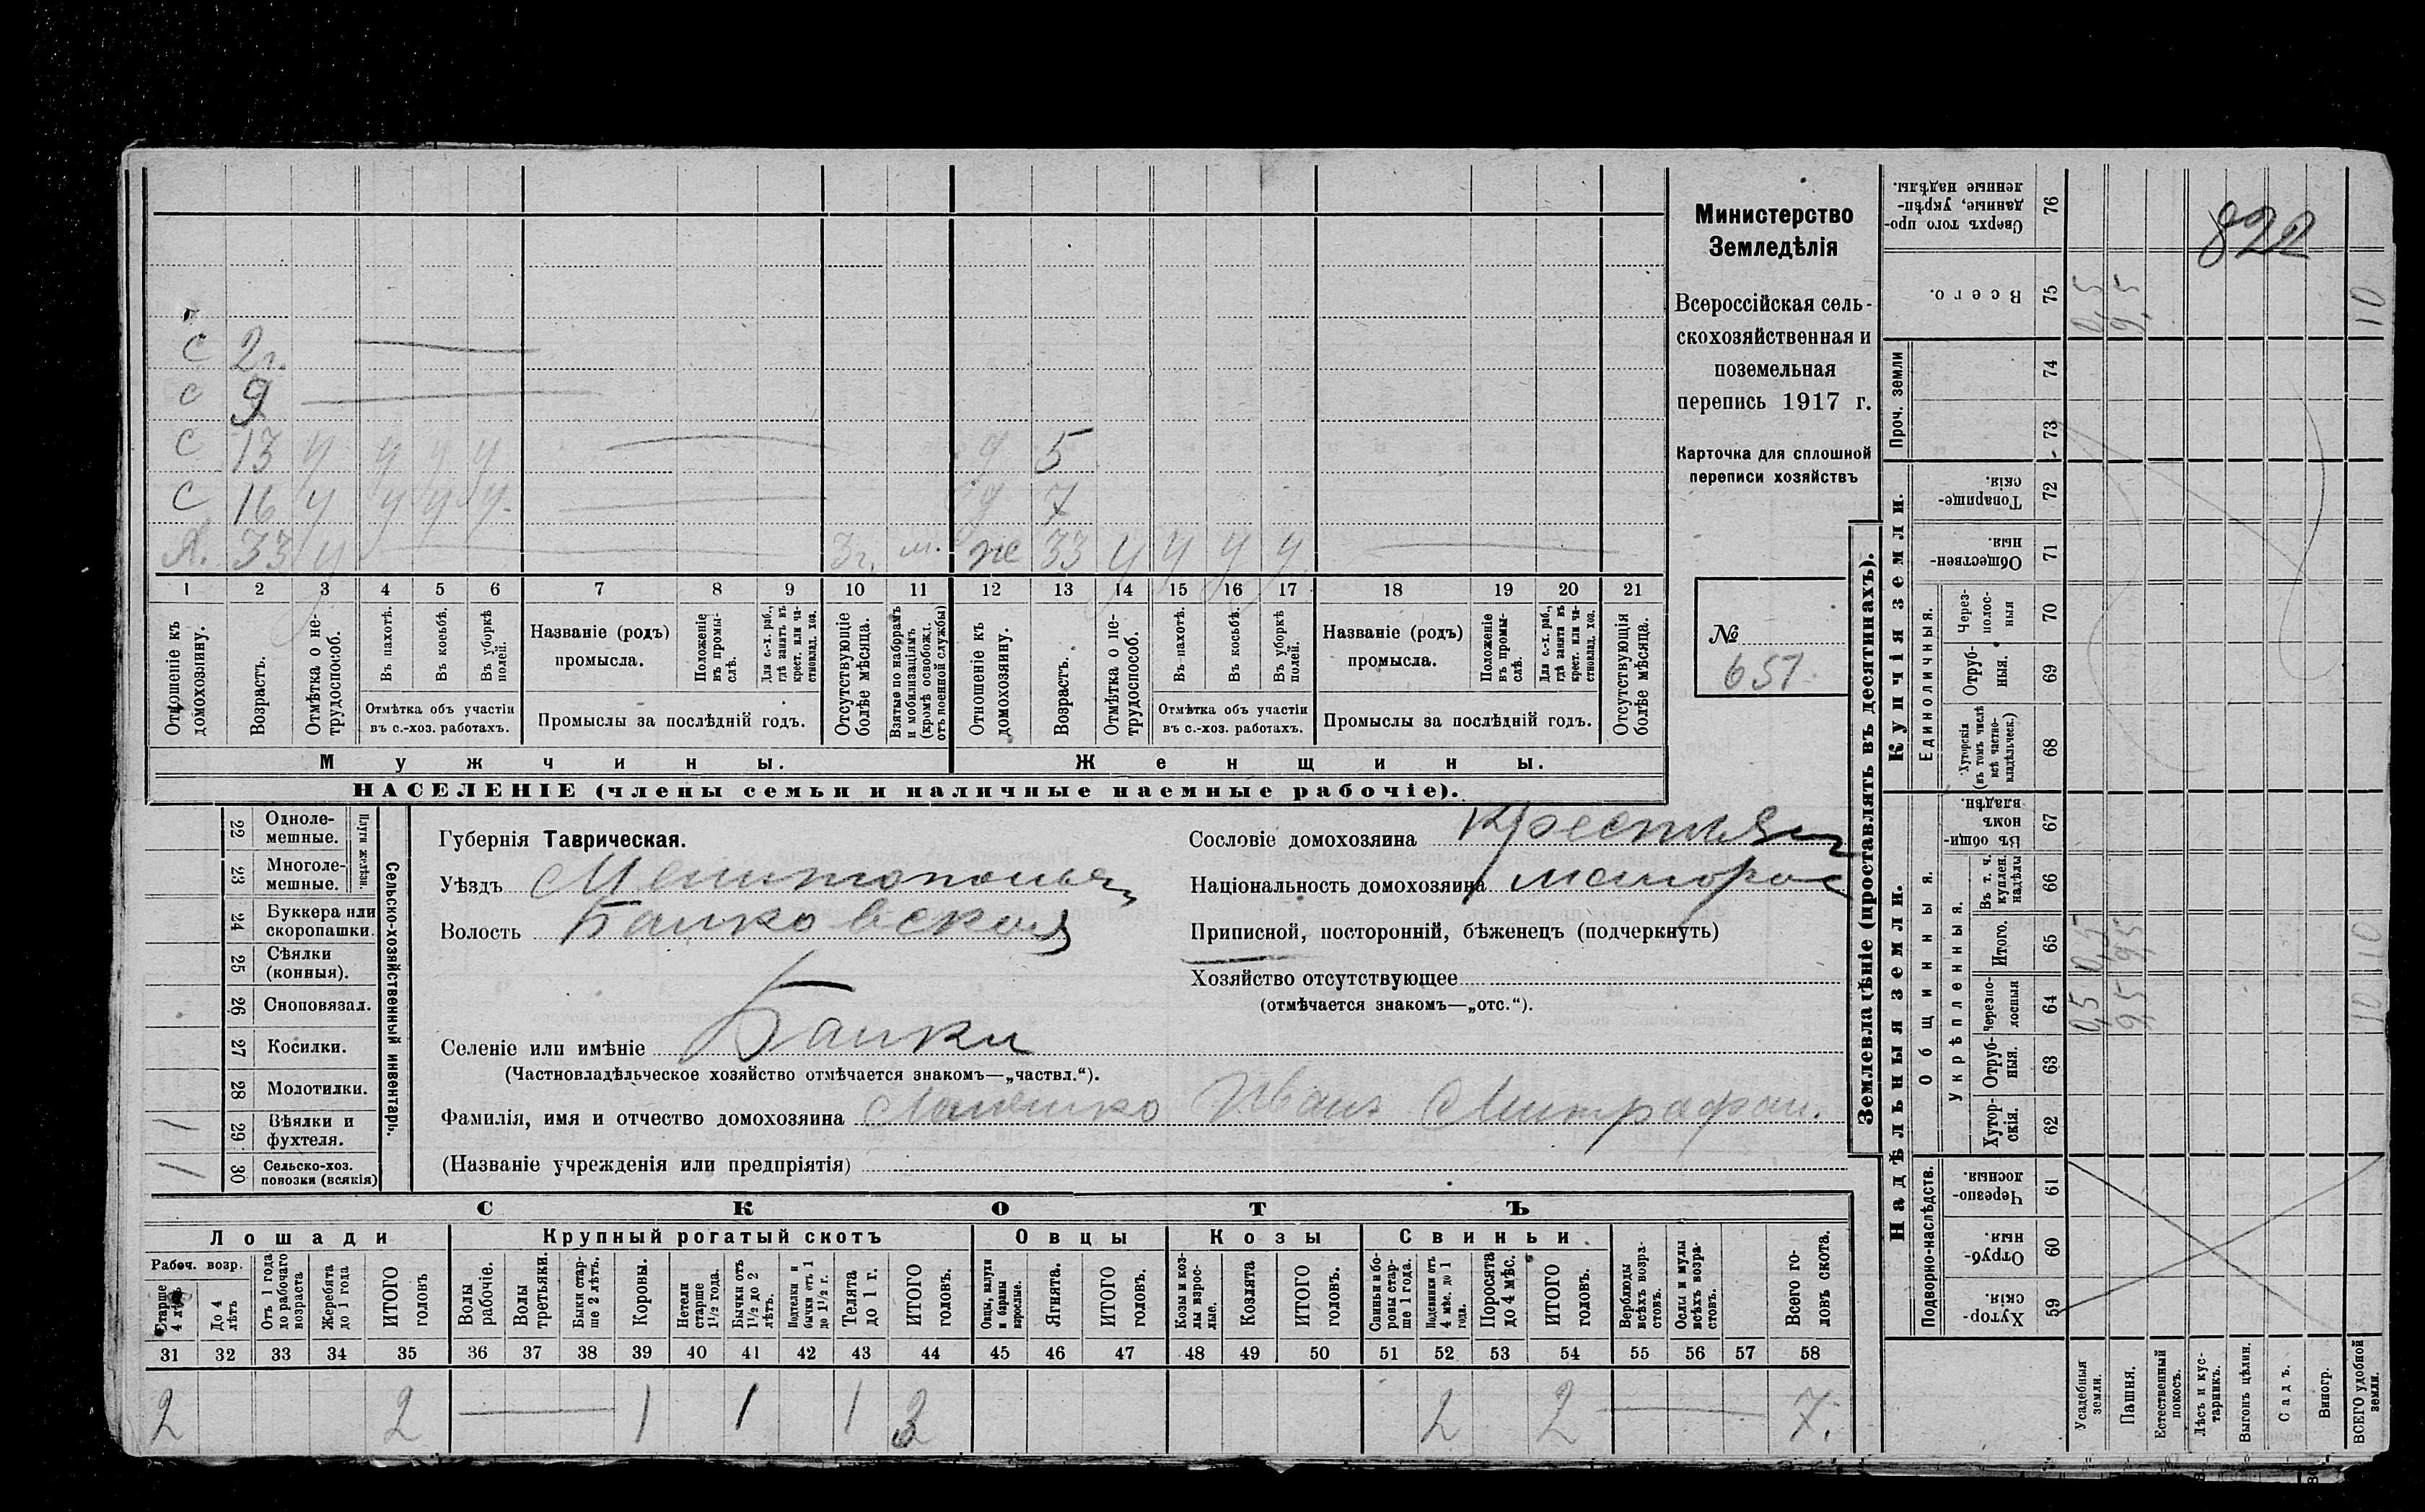 Министерство
Земледѣлія
Всероссійская сель-
скохозяйственная и
поземельная
перепись 1917 г.
Карточка для сплошной
переписи хозяйствъ
№
651
822
С 2г.
С 9
С 13 у у у у д 5
С 16 у у у у д 7
Я. 33 у 3г. м. же 33 у у у у
1 2 3 4 5 6 7 8 9 10 11 12 13 14 15 16 17 18 19 20 21
Отношеніе къ домохозяину.
Возрастъ.
Отмѣтка о не-трудоспособ.
Въ пахотѣ.
Въ косьбѣ.
Въ уборкѣ полей.
Отмѣтка объ участіи
въ с.-хоз. работахъ.
Названіе (родъ)
промысла.
Положеніе въ промы-слѣ.
Для с.-х. раб., гдѣ занятъ въ крест. или ча-стновлад. хоз.
Промыслы за послѣдній годъ.
Отсутствующіе болѣе мѣсяца.
Взятые по наборамъ и мобилизаціямъ (кромѣ освобожд. отъ военной службы)
Отношеніе къ домохозяину.
Возрастъ.
Отмѣтка о не-трудоспособ.
Въ пахотѣ.
Въ косьбѣ.
Въ уборкѣ полей.
Отмѣтка объ участіи
въ с.-хоз. работахъ.
Названіе (родъ)
промысла.
Положеніе въ промы-слѣ.
Для с.-х. раб., гдѣ занята въ крест. или ча-стновлад. хоз.
Промыслы за послѣдній годъ.
Отсутствующія болѣе мѣсяца.
Мужчины. Женщины.
НАСЕЛЕНІЕ (члены семьи и наличные наемные рабочіе).
22 Одноле-мешные.
23 Многоле-мешные.
Плуги желѣзн.
24 Буккера или скоропашки.
25 Сѣялки (конныя).
26 Сноповязал.
27 Косилки.
28 Молотилки.
1 29 Вѣялки и фухтеля.
1 30 Сельско-хоз. повозки (всякія)
Сельско-хозяйственный инвентарь.
Губернія Таврическая.
Уѣздъ Мелитопольск
Волость Балковская
Селеніе или имѣніе Балки
(Частновладѣльческое хозяйство отмѣчается знакомъ—„частвл.“).
Фамилія, имя и отчество домохозяина Иванъ Митрафан.
(Названіе учрежденія или предпріятія)
Сословіе домохозяина Крестьян
Національность домохозяина малорос
Приписной, посторонній, бѣженецъ (подчеркнуть)
Хозяйство отсутствующее
(отмѣчается знакомъ—„отс.“).
СКОТЪ
Лошади Крупный рогатый скотъ Овцы Козы Свиньи.
Рабоч. возр.
Старше 4 лѣтъ
До 4 лѣтъ
Отъ 1 года до рабочаго возраста
Жеребята до 1 года
ИТОГО головъ
Волы рабочіе.
Волы третьяки.
Быки стар-ше 2 лѣтъ.
Коровы.
Нетели старше 1½ года.
Бычки отъ 1½ до 2 лѣтъ.
Подтелки и бычки отъ 1 до 1½ г.
Телята до 1 г.
ИТОГО головъ.
Овцы, валухи и бараны взрослые.
Ягнята.
ИТОГО головъ.
Козы и коз-лы взрос-лые.
Козлята
ИТОГО головъ.
Свиньи и бо-ровы стар-ше 1 года.
Подсвинки отъ 4 мѣс. до 1 года.
Поросята до 4 мѣс.
ИТОГО головъ.
Верблюды всѣхъ возра-стовъ.
Ослы и мулы всѣхъ возра-стовъ.
Всего го-ловъ скота.
31 32 33 34 35 36 37 38 39 40 41 42 43 44 45 46 47 48 49 50 51 52 53 54 55 56 57 58
2 2 1 1 1 3 2 2 7.
Землевладѣніе (проставлять въ десятинахъ).
Надѣльныя земли.
Купчія земли.
Проч. земли
Подворно-наслѣдств.
Общинныя.
Укрѣпленныя.
Единоличныя.
Сверхъ того про-данные, укрѣп-ленные надѣлы. 76
Всего. 75 0,5 9,5 10
74
73
Товарище-скія. 72
Обществен-ныя. 71
Через-полос-ныя 70
Отруб-ныя. 69
Хуторскія (въ томъ числѣ всѣ частно-владѣльческ.) 68
Въ общи-номъ владѣн. 67
Въ т. ч. куплен. надѣлы 66
Итого. 65 0,5 9,5 10
Черезпо-лосныя 64 0,5 9,5 10
Отруб-ныя. 63
Хутор-скія. 62
Черезпо-лосныя. 61
Отруб-ныя. 60
Хутор-скія. 59
Усадебныя земли.
Пашня.
Естественный покосъ.
Лѣсъ и кус-тарникъ.
Выгонъ цѣлин.
Садъ.
Виногр.
ВСЕГО удобной земли.